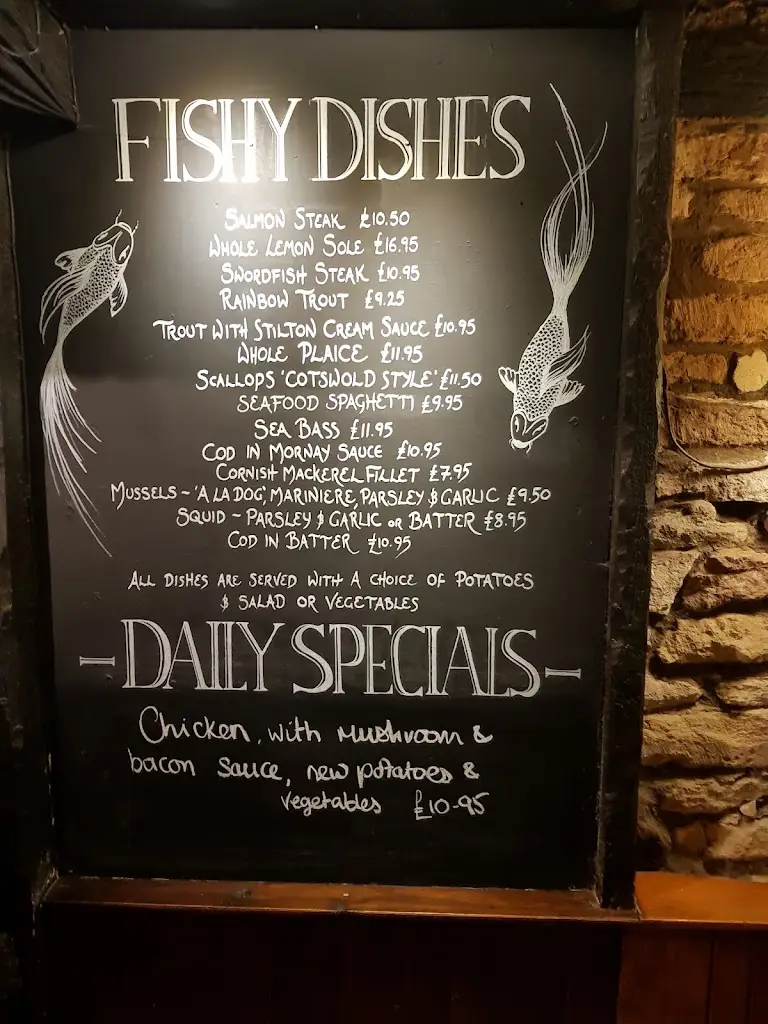 FISHY DISHES
SALMON STEAK £10.50
WHOLE LEMON SOLE £16.95
SWORDFISH STEAK £10.95
RAINBOW TROUT £9.25
TROUT WITH STILTON CREAM SAUCE £10.95
WHOLE PLAICE £11.95
SCALLOPS 'COTSWOLD STYLE' £11.50
SEAFOOD SPAGHETTI £9.95
SEA BASS £11.95
COD IN MORNAY SAUCE £10.95
CORNISH MACKEREL FILLET £7.95
MUSSELS ~ 'A LA DOG', MARINIERE, PARSLEY & GARLIC £9.50
SQUID ~ PARSLEY & GARLIC OR BATTER £8.95
COD IN BATTER £10.95
ALL DISHES ARE SERVED WITH A CHOICE OF POTATOES
& SALAD OR VEGETABLES
-DAILY SPECIALS-
Chicken, with Mushroom &
bacon sauce, new potatoes &
vegetables £10-95